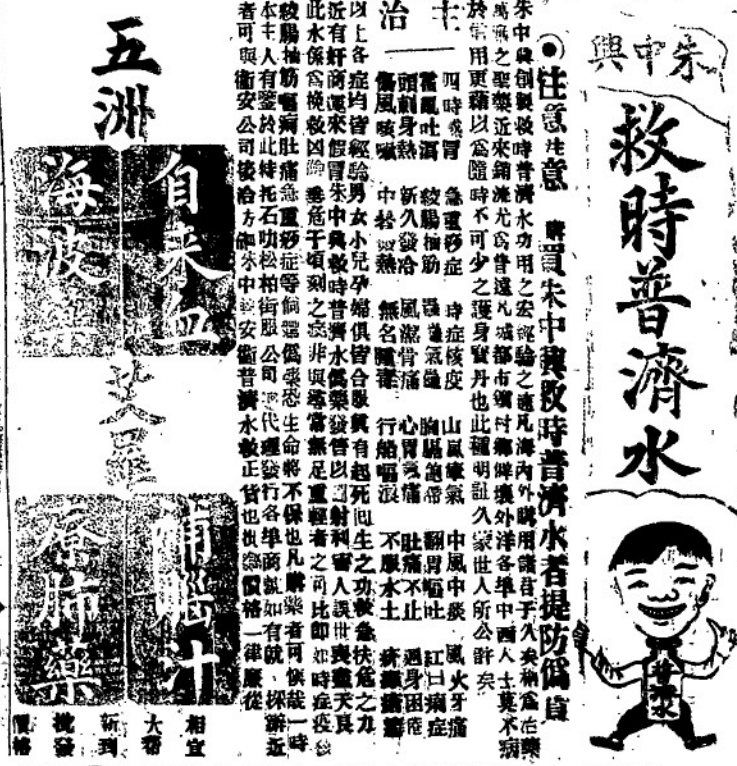 朱中興
救時普濟水
普濟水
注意注意 購買朱中興救時普濟水者提防偽冒
朱中興創製救時普濟水功用之宏經驗之遠凡海內外購用諸君子久矣稱為治藥
萬病之聖藥近來銷流尤為普遠凡城都市鎮村鄉僻壤外洋各埠中西人士莫不病
於需用更藉以為隨時不可少之護身寶丹也此種明証久蒙世人所公許矣
主治
四時感冒 急重痧症 時症核疫 山嵐瘴氣 中風中痰 風火牙痛
霍亂吐瀉 絞腸抽筋 胸膈飽滯 翻胃嘔吐 紅白痢症
頭刺身熱 新久發冷 風濕骨痛 心胃氣痛 肚痛不止 遍身困倦
傷風咳嗽 中暑 熱 無名腫毒 行船嘔浪 不服水土
以上各症均皆經驗男女小兒孕婦俱皆合服實有起死回生之功救急扶危之力
近有奸商運來假冒朱中興救時普濟水偽藥發售以圖射利害人誤世喪盡天良
此水係為挽救凶險垂危于頃刻之症非與尋常無足重輕者之可比即如時症疫
絞腸抽筋 肚痛急重痧症等倘遇偽藥恐生命將不保也凡購藥者可慎哉一時
本主人有鑒於此特托石叻松柏街服安公司 代理發行各埠商號如有就 採辦近
者可與衛安公司接洽方 朱中興安衛普濟水救正貨也批 價格一律廉從
五洲
自來血
海波藥
艾羅
補腦汁
療肺藥
相宜
大幫
新到
批發
價格